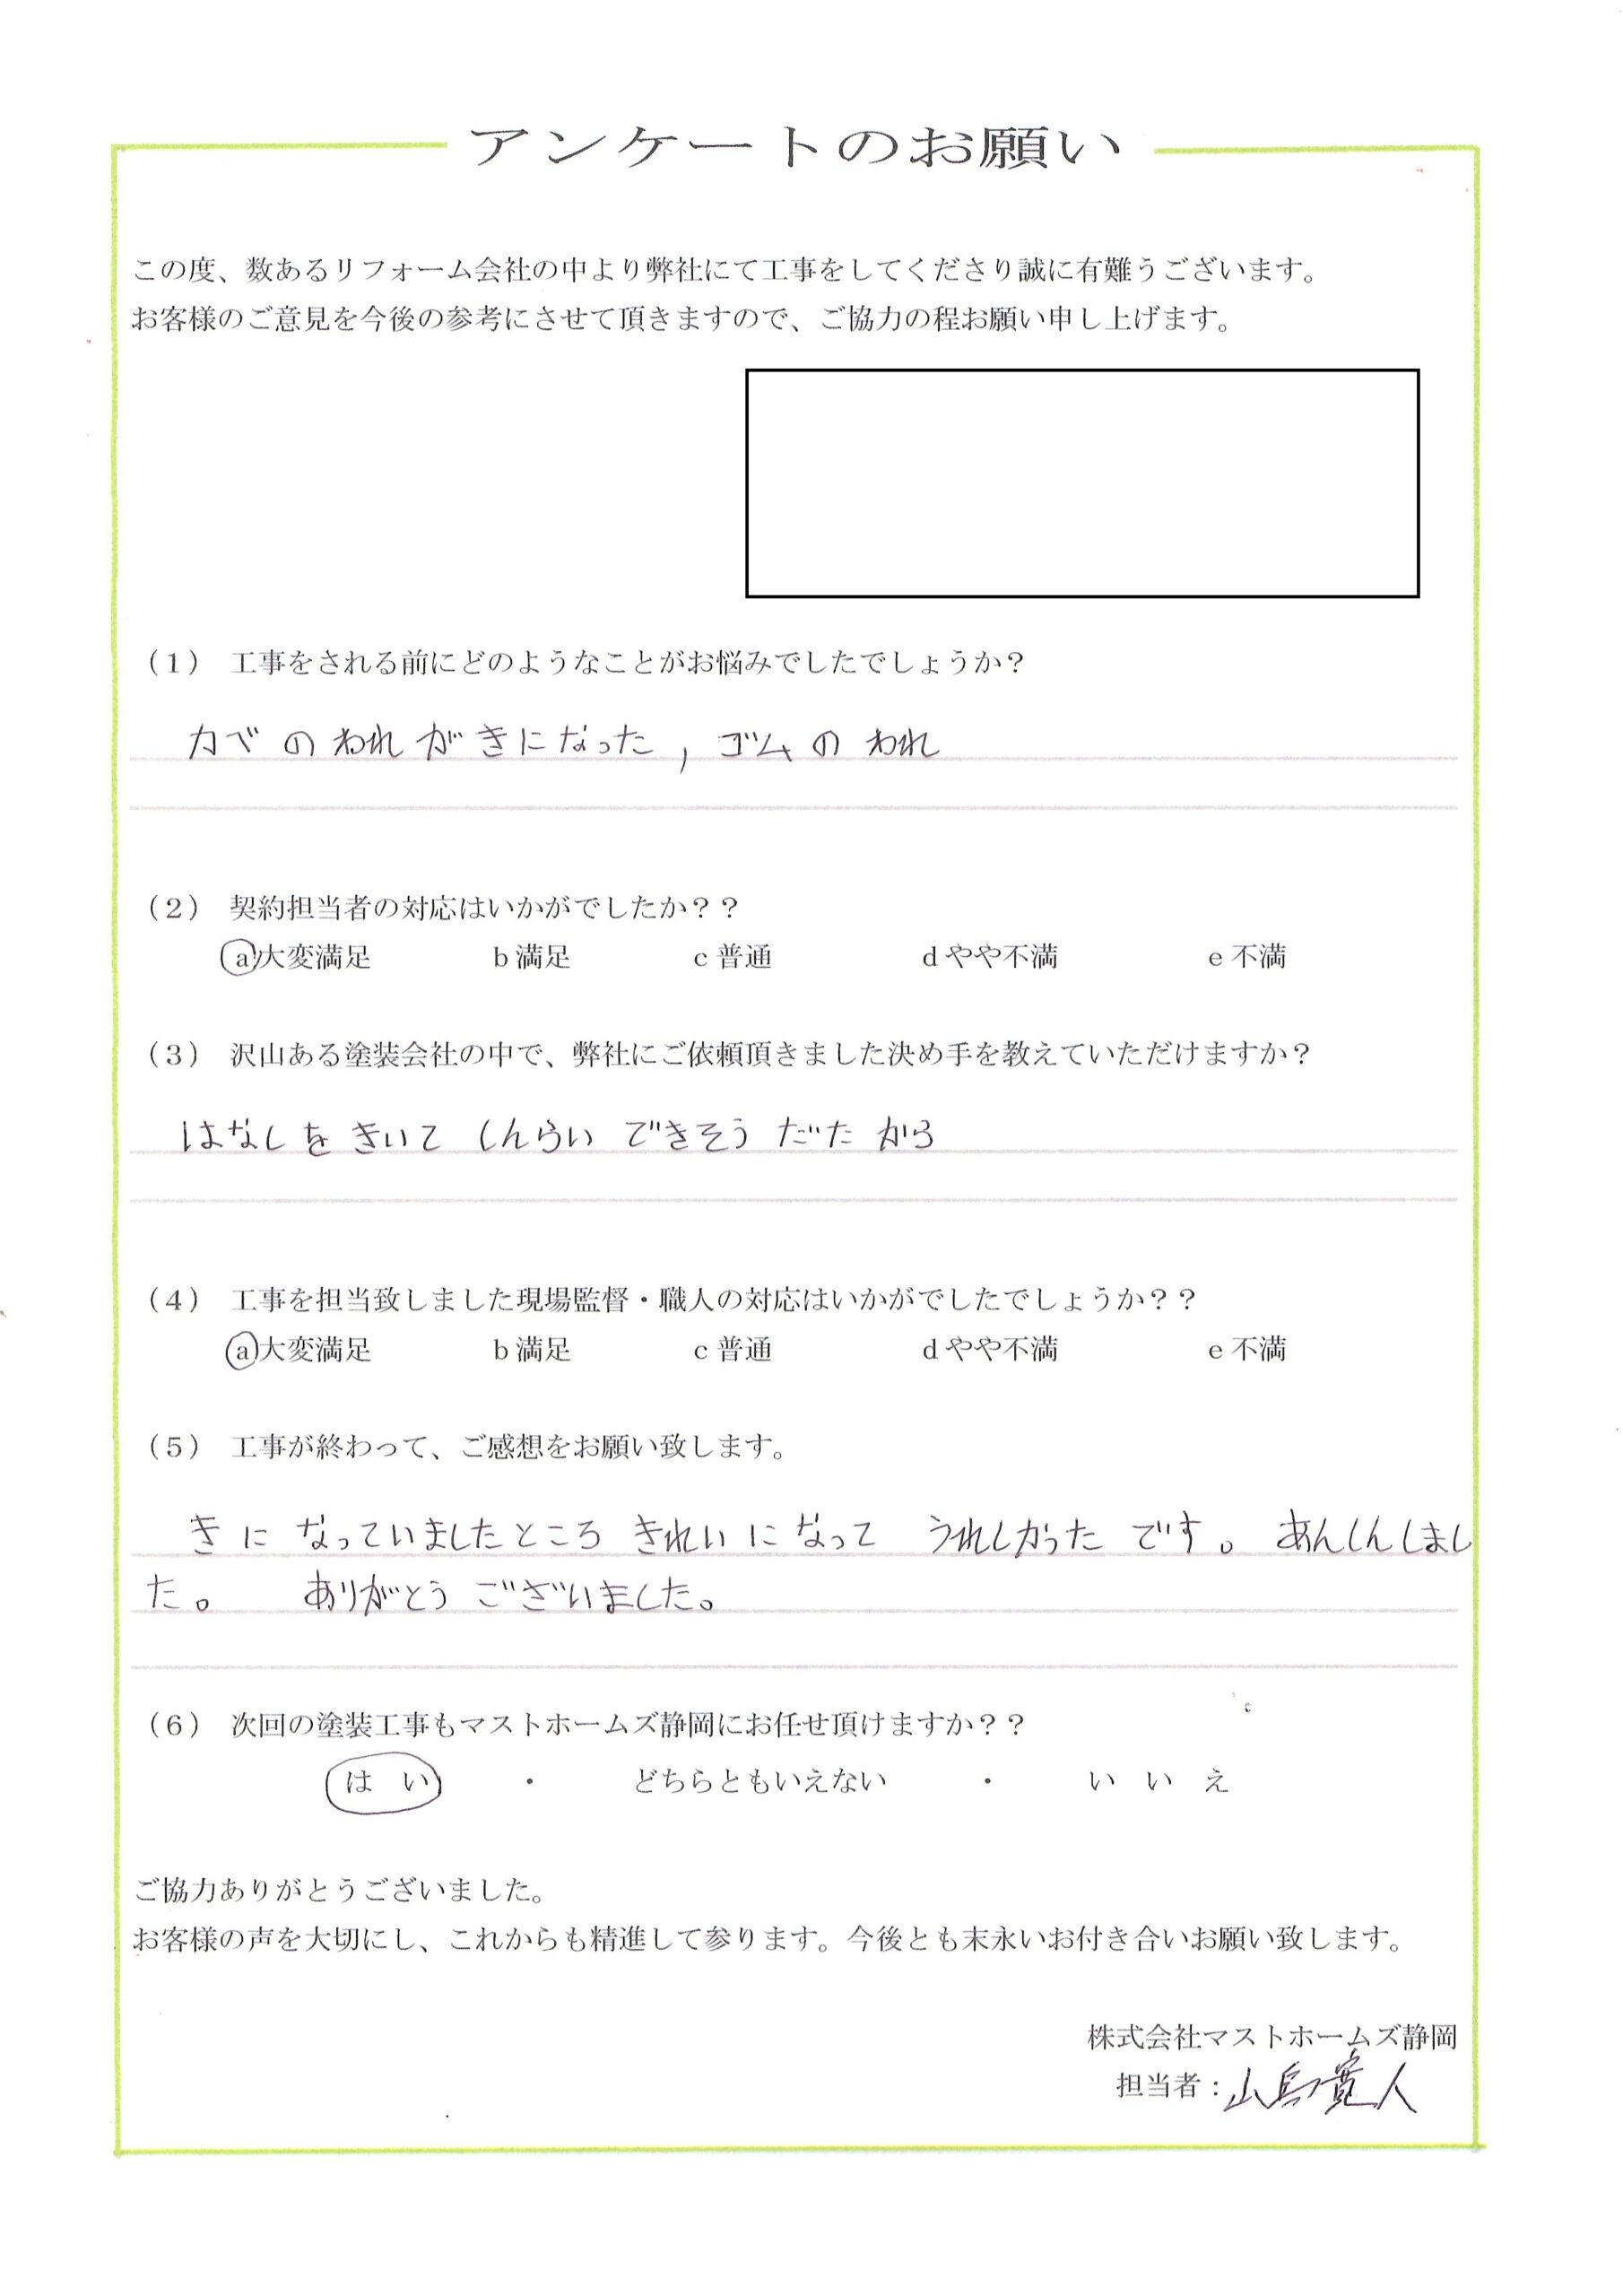 アンケートのお願い
この度、数あるリフォーム会社の中より弊社にて工事をしてくださり誠に有難うございます。
お客様のご意見を今後の参考にさせて頂きますので、ご協力の程お願い申し上げます。
（1） 工事をされる前にどのようなことがお悩みでしたでしょうか？
カベのわれがきになった, ゴムのわれ
（2） 契約担当者の対応はいかがでしたか？？
a大変満足 b満足 c普通 dやや不満 e不満
（3） 沢山ある塗装会社の中で、弊社にご依頼頂きました決め手を教えていただけますか？
はなしをきいて しんらい できそう だった から
（4） 工事を担当致しました現場監督・職人の対応はいかがでしたでしょうか？？
a大変満足 b満足 c普通 dやや不満 e不満
（5） 工事が終わって、ご感想をお願い致します。
きに なっていましたところ きれいに なって うれしかった です。 あんしんしまし
た。 ありがとう ございました。
（6） 次回の塗装工事もマストホームズ静岡にお任せ頂けますか？？
は い ・ どちらともいえない ・ い い え
ご協力ありがとうございました。
お客様の声を大切にし、これからも精進して参ります。今後とも末永いお付き合いお願い致します。
株式会社マストホームズ静岡
担当者：山島寛人